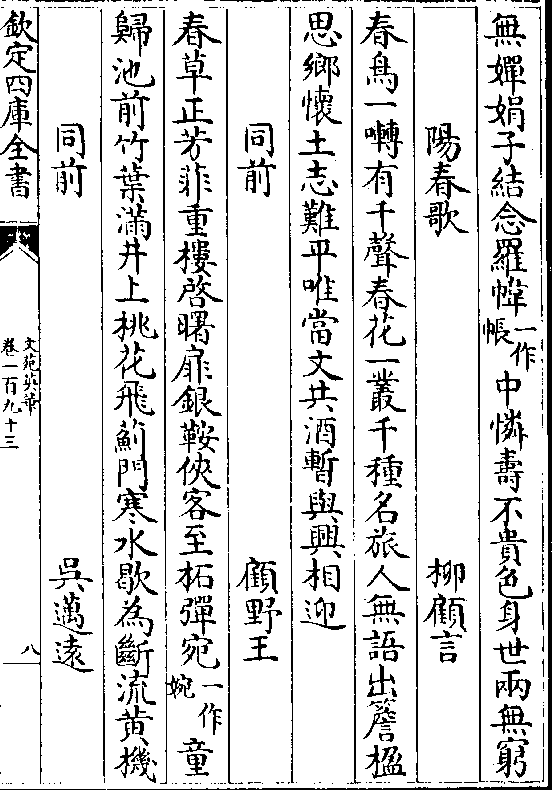 無嬋娟子結念羅幃一作帳中憐壽不貴色身世兩無窮
陽春歌 柳顧言
春鳥一囀有千聲春花一叢千種名旅人無語出簷楹
思鄉懷土志難平唯當文共酒暫與興相迎
同前 顧野王
春草正芳菲重樓啓曙扉銀鞍俠客至柘彈宛一作婉童
歸池前竹葉滿井上桃花飛薊門寒水歇為斷流黄機
同前 吳邁遠
欽定四庫全書
文苑英華
卷一百九十三
八